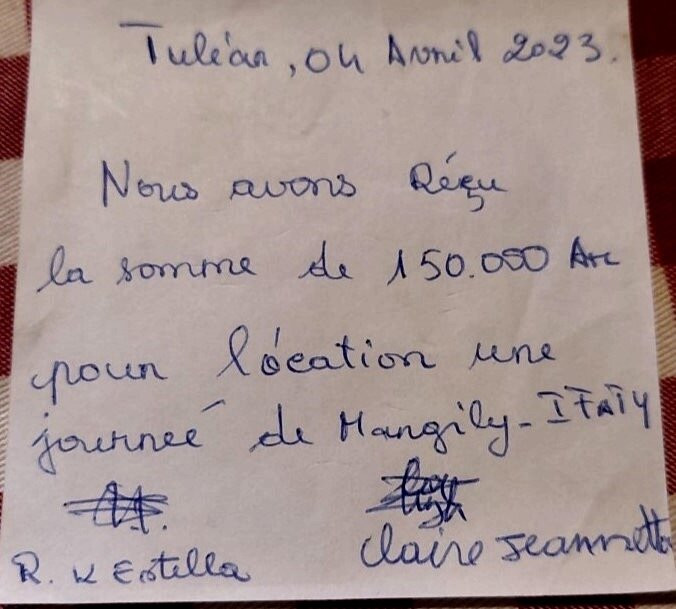 Tuléar, 04 Avril 2023.
Nous avons Réçu
la somme de 150.000 Ar
pour location une
journeé de Mangily - IFATY
R. K Estella
Claire Jeannette